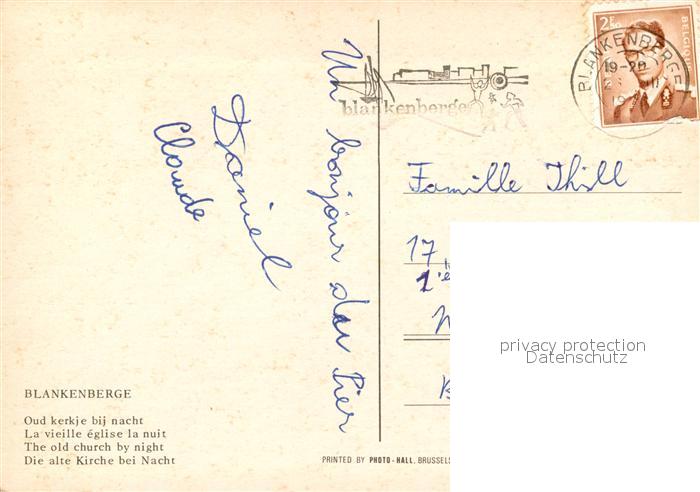 Un bonjour dar Pier
Daniel
Claude
2F50
BELGIQUE
BLANKENBERGE
19-20
blankenberge
Famille Thill
17
1
privacy protection
Datenschutz
BLANKENBERGE
Oud kerkje bij nacht
La vieille église la nuit
The old church by night
Die alte Kirche bei Nacht
PRINTED BY PHOTO-HALL, BRUSSELS